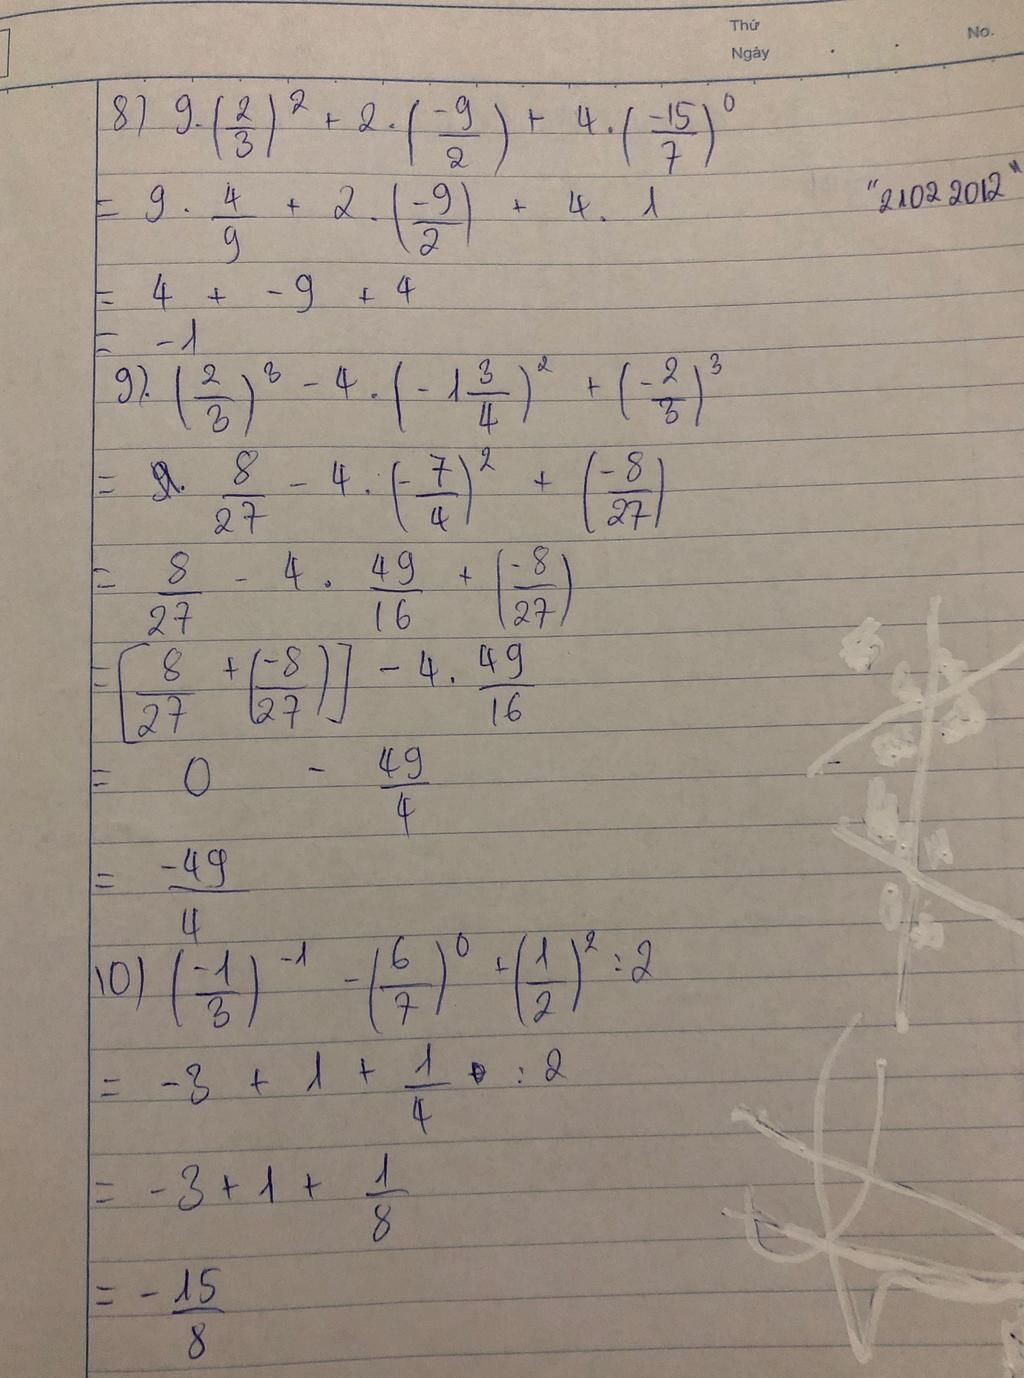 Thứ
No.
Ngày
8) 9.(2/3)^2 + 2.(-9/2) + 4.(-15/7)^0
= 9 . 4/9 + 2.(-9/2) + 4. 1
"21022012"
= 4 + -9 + 4
= -1
9). (2/3)^3 - 4.(-1 3/4)^2 + (-2/3)^3
= 8/27 - 4.(-7/4)^2 + (-8/27)
= 8/27 - 4. 49/16 + (-8/27)
= [8/27 + (-8/27)] - 4. 49/16
= 0 - 49/4
= -49/4
10) (-1/3)^-1 - (6/7)^0 + (1/2)^2 : 2
= -3 + 1 + 1/4 : 2
= -3 + 1 + 1/8
= - 15/8